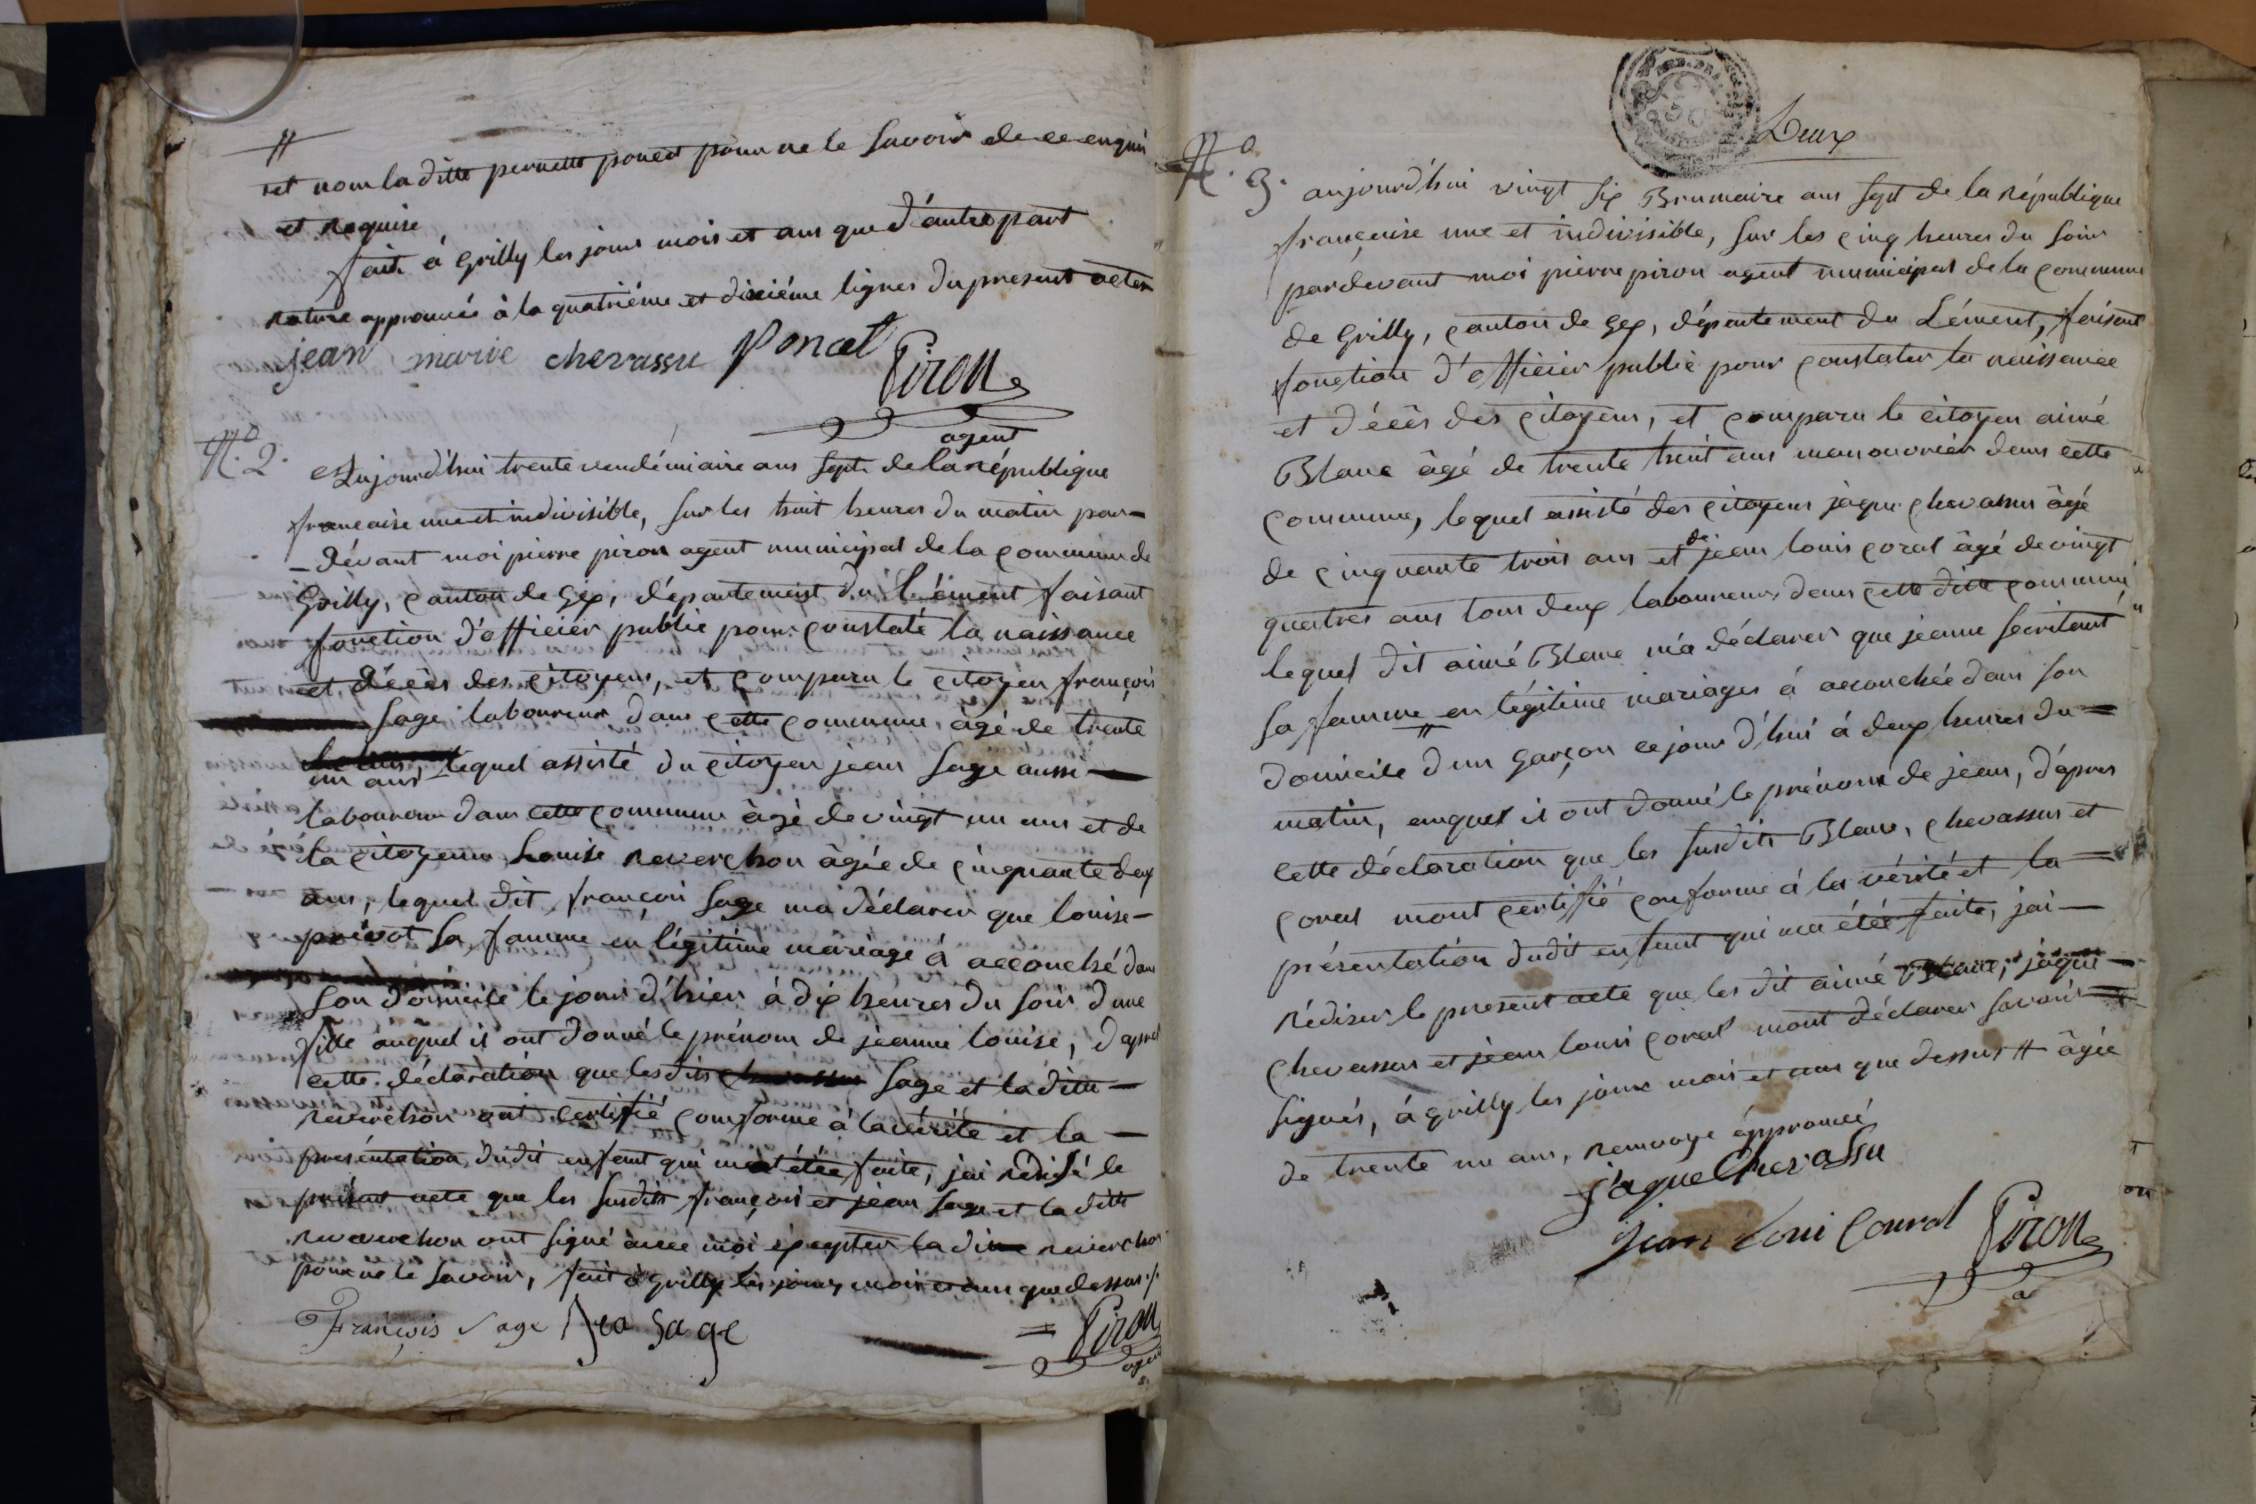 #
et non la ditte pernette poncet pour ne le savoir de ce enquis
et requise
fait à Grilly les jours mois et ans que d'autre part
rature approuvés à la quatriéme et dixiéme lignes du present acte
jean marie chevassu Poncet
Piron
agent
N.o 2. Aujourd'hui trente vendémiaire ans sept de la république
française une et indivisible, sur les huit heures du matin par-
-dévant moi pierre piron agent municipal de la commune de
Grilly, canton de Gex, département du Lément faisant
fonction d'officier public pour constaté la naissance
et décès des citoyens, et comparu le citoyen françois
sage laboureur dans cette commune, âgé de trente
un ans, lequel assisté du citoyen jean sage aussi
laboureur dans cette commune âgé de vingt un ans et de
la citoyenne Louise reverchon âgée de cinquante deux
ans, lequel dit françois sage ma déclarer que louise-
prévot sa famme en légitime mariage à accouché dans
son domicile le jour d'hier à dix heures du soir d'une
fille auquel il ont donné le prénom de jeanne louise, d'apres
cette déclaration que lesdits chevassus sage et la ditte
reverchon ont certifié conforme à la vérité et la
présentation dudit enfant qui ma étée faite, jai rédigé le
présent acte que les susdits françois et jean sage et la ditte
reverchon ont signé avec moi exeepter la ditte reverchon
pour ne le savoir, fait à Grilly les jours, mois et ans que dessus ./.
François Sage Jea Sage
Piron
agent
Deux
N.o 3. aujourd'hui vingt six Brumaire ans sept de la république
française une et indivisible, sur les cinq heures du soir
pardevant moi pierre piron agent municipal de la commune
de Grilly, canton de Gex, département du Lément, faisant
fonction d'officier public pour constater la naissance
et décès des citoyens, et comparu le citoyen aimé
Blanc âgé de trente huit ans manouvrier dans cette
commune, lequel assisté des citoyens jaque chevassus âgé
de cinquante trois ans et de jean louis coral âgé de vingt
quatres ans tous deux laboureurs dans cette ditte commune,
lequel dit aimé Blanc m'a déclarer que jeanne secritant
sa famme # en légitime mariages à accouchée dans son
domicile d'un garçon ce jour d'hui à deux heures du
matin, auquel il ont donné le prénom de jean, d'après
cette déclaration que les susdits Blanc, chevassus et
coral mont certifié conforme à la vérité et la
présentation dudit enfant qui ma étée faite, jai
rédiser le present acte que les dit aimé Blanc, jaque
chevassus et jean louis coral mont déclarer savoir
signés, à grilly les jours mois et ans que dessus # âgée
de trente un ans, renvoye approuvé
jaque Chevassu
jean Loui Coural Piron
a